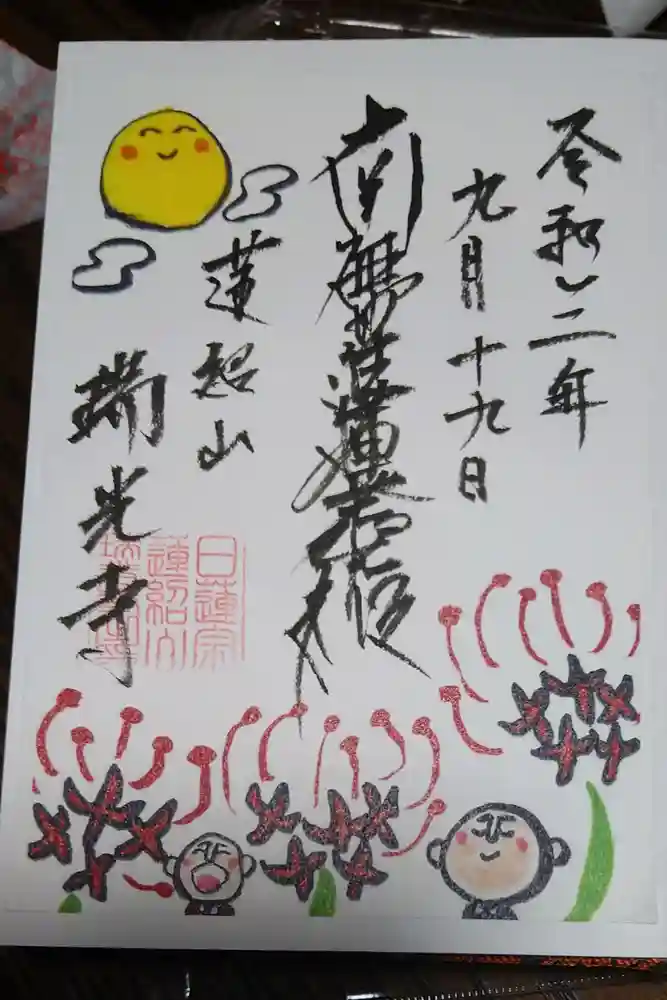 令和二年
九月十九日
南無妙法蓮華経
蓮紹山
瑞光寺
日蓮宗
蓮紹山
瑞光寺